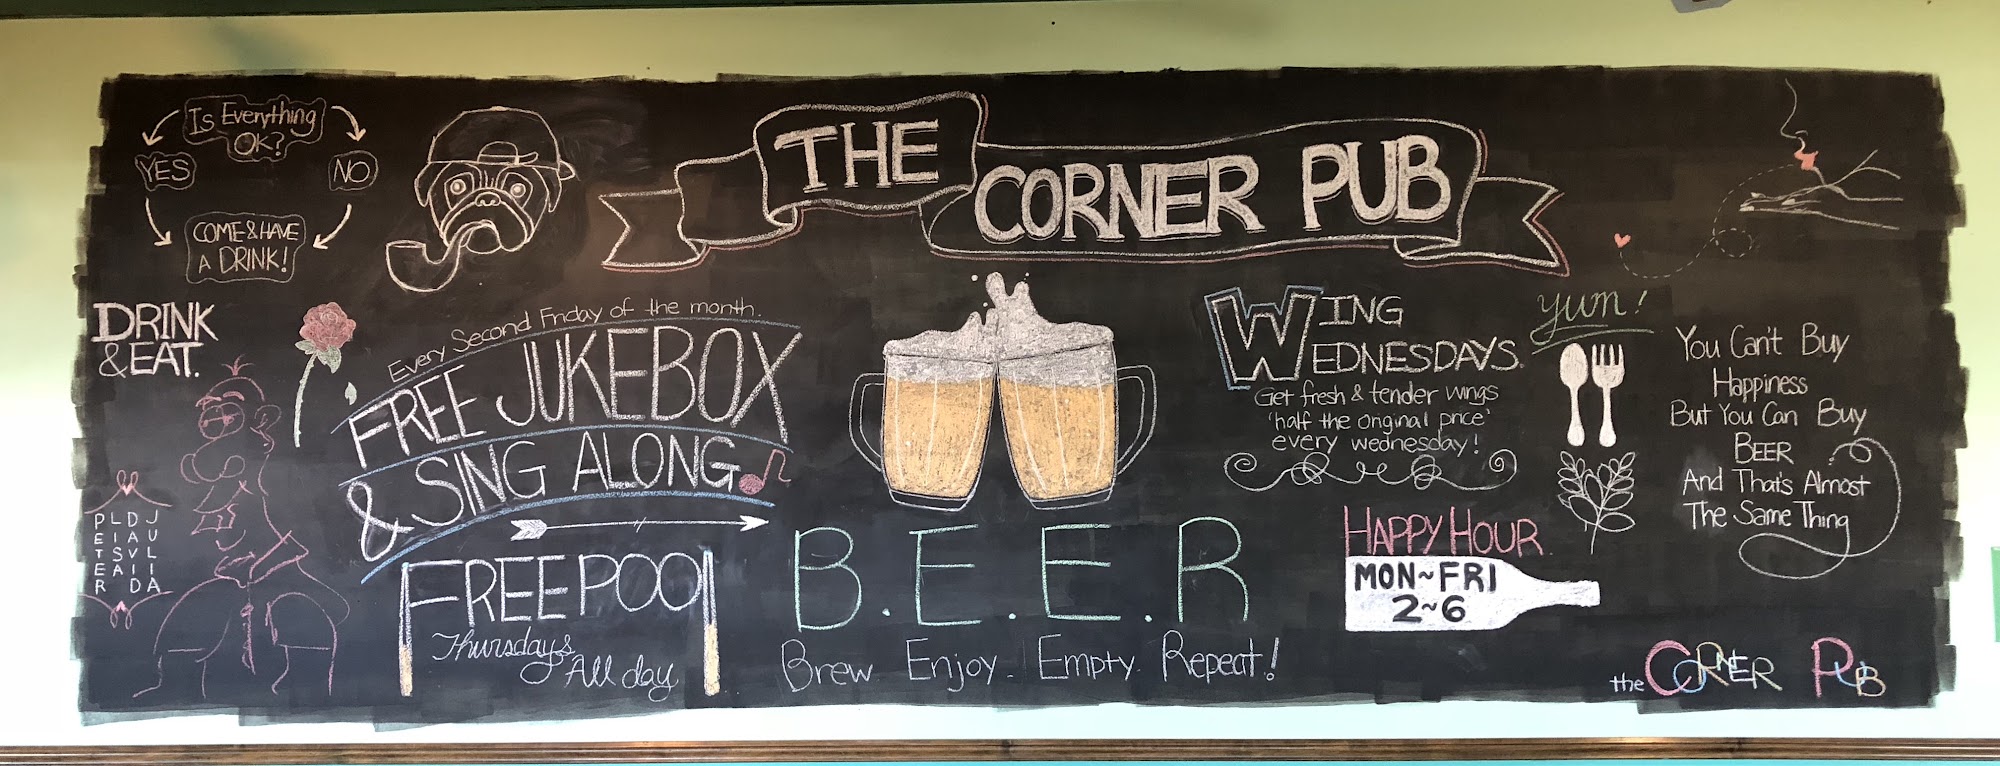 THE
CORNER PUB
Is Everything
OK?
YES
NO
COME & HAVE
A DRINK!
DRINK
& EAT.
PETER
LISA
DAVID
JULIA
Every Second Friday of the month.
FREE JUKEBOX
& SING ALONG
FREE POOl
Thursdays
All day
B.E.E.R
Brew Enjoy. Empty. Repeat!
WING
WEDNESDAYS.
Get fresh & tender wings
'half the original price'
every wednesday!
yum!
HAPPY HOUR
MON~FRI
2~6
You Can't Buy
Happiness
But You Can Buy
BEER
And That's Almost
The Same Thing
the CORNER PUB